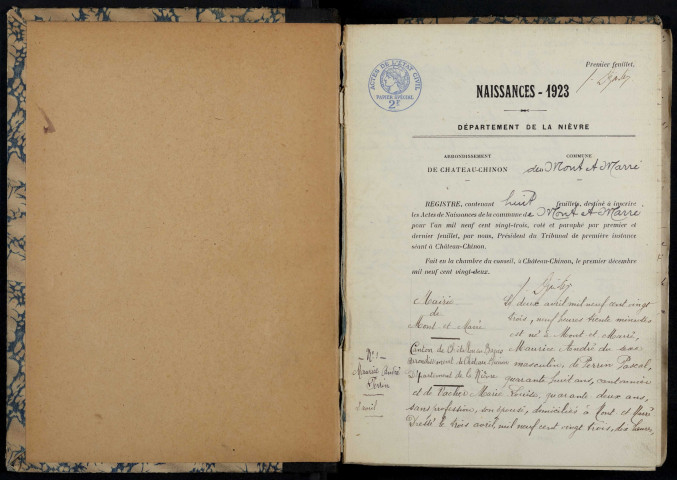 Premier feuillet.
ACTES DE L'ÉTAT CIVIL
PAPIER SPÉCIAL
2F
NAISSANCES - 1923
DÉPARTEMENT DE LA NIÈVRE
ARRONDISSEMENT
DE CHATEAU-CHINON
COMMUNE
de Mont et Marré
REGISTRE, contenant huit feuillets, destiné à inscrire
les Actes de Naissances de la commune de Mont et Marré
pour l'an mil neuf cent vingt-trois, coté et paraphé par premier et
dernier feuillet, par nous, Président du Tribunal de première instance
séant à Château-Chinon.
Fait en la chambre du conseil, à Château-Chinon, le premier décembre
mil neuf cent vingt-deux.
Mairie
de
Mont et Marré
Canton de Châtillon en Bazois
Arrondissement de Château-Chinon
Département de la Nièvre
N° 1
Maurice André
Perrin
2 avril
Le deux avril mil neuf cent vingt
trois, neuf heures trente minutes
est né à Mont et Marré,
Maurice André du sexe
masculin, de Perrin Pascal,
quarante huit ans, cantonnier
et de Marie Louise, quarante deux ans,
sans profession, son épouse, domiciliés à Mont et Marré
Dressé le trois avril mil neuf cent vingt trois, dix heures,